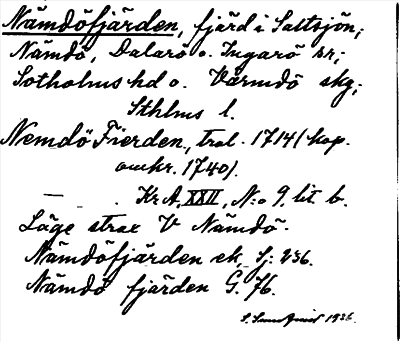 Nämdöfjärden, fjärd i Saltsjön,
Nämdö, Dalarö o. Ingarö snr;
Sotholms hd o. Värmdö skg;
Sthlms l.
Nemdö Fierden, tral. 1714 (kop.
omkr. 1740).
— . Kr A, XXII, N:o 9. lit b.
Läge strax V Nämdö.
Nämdöfjärden ek. Sj: 236.
Nämdö fjärden G. 76.
1936.